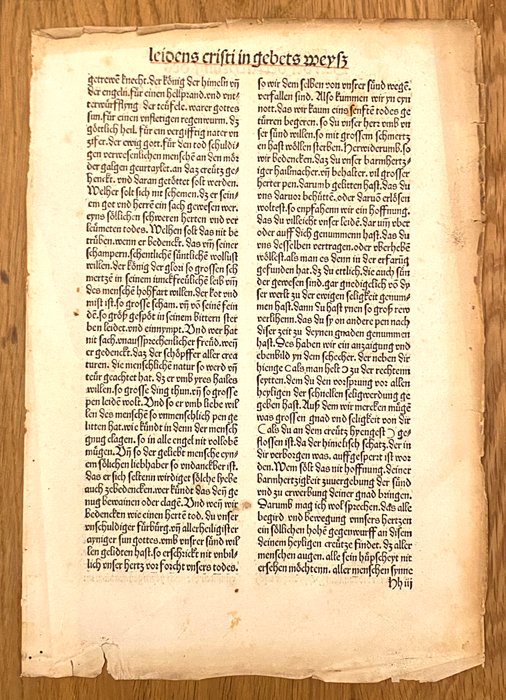 leidens cristi in gebets weysz
getrewē knecht. der könig der himeln vñ
der engeln. für einen hellprand. vnd vnt-
terwürfflyng der teüfele. warer gottes
sun. für einen vnfletigen regenwurm. dz
götlich heil. für ein vergifftig nater vn
zifer. der ewig gott. für den tod schuldi-
gen verwesenlichen menschē an den mör
der galgen geurtaylet. an daz creütz ge-
henckt. vnd daran getöttet solt werden.
Welher solt sich nit schemen. dz er sein-
em got vnd herrē ein sach gewesen wer.
eyns söllichen schweren herten vnd ver
leümeten todes. Welhen solt das nit be
trüben. wenn er bedenckt. das vm̄ seiner
schampern. schentlichē süntlichē wollust
willen. der könig der glori so grossen sch
mertzē in seinem leib vm̄
des menschē hohfart willen. der kot vnd
mist ist. so grosse scham. vm̄ vō seinē fein
dē. so gröss gespöt in seinem bittern ster
ben leidet. vnd einnympt. Vnd wer hat
nit sach. vnaussprechenlicher freüd. weñ
er gedenckt. daz der schöpffer aller crea
turen. die menschlichē natur so werd vñ
teür geachtet hat. dz er vmb yres hailes
willen. so grosse ding thun. vñ so grosse
pen leidē wolt. Vnd so er vmb liebe wil
len des menschē so vnmenschlich pen ge
litten hat. wie kündt in denn der mensch
gnug clagen. so in alle engel nit volclobē
mügen. Vñ so der geliebt mensche eyn
em sölichen liebhaber so vndanckber ist.
das er sich seltenn wirdiget sölche lyebe
auch zebedencken. wer kündt das deñ ge
nug bewainen oder clagē. Vnd weñ wir
bedencken wie einen hertē tod. du vnser
vnschuldiger fürbürg. vñ allerheiligister
ayniger sun gottes. vmb vnser sünd wil
len gelidten hast. so erschrickt nit vnbil-
lich vnser hertz vor forcht vnsers todes.
so wir dem selben von vnser sünd wegē.
verfallen sind. Also kummen wir yn eyn
nott. das wir kaum eins senfftē todes ge
türren begeren. so du vnser herr vmb vn
ser sünd willen. so mit grossem schmertz
en hast wöllen sterben. Herwiderumb. so
wir bedencken. daz du vnser barmhertz-
iger hailmacher. vñ behalter. vil grosser
herter pen. darumb gelitten hast. das du
vns daruor behüttē. oder daruō erlösen
woltest. so enpfahenn wir ein hoffnung.
das du villeicht vnser leidē. dar vm̄ yber
oder auff dich genummenn hast. das du
vns desselben vertragen. oder vberhebē
wöllest. als man es denn in der erfarūg
gefunden hat. dz du ertlich. die auch sün
der gewesen sind. gar gnediglich vō dy
ser welt zu der ewigen seligkeit genum-
men hast. dann du hast ynen so grosz rew
verlihenn. das du sy an andere pen nach
diser zeit zu deynen gnaden genummen
hast. Des haben wir ein anzaigung vnd
ebenbild yn dem schecher. der neben dir
hienge (als man helt) zu der rechtenn
seytten. dem du den vorsprung vor allen
heyligen der schnellen seligwerdung ge
geben hast. Auß dem wir mercken mügē
was grossen gnad vnd seligkeit von dir
(als du an dem creütz hyengest) ge-
flossen ist. da der himelisch schatz. der in
dir verborgen was. auffgesperrt ist wor
den. Wem sölt das nit hoffnung. deiner
barmhertzigkeit zuuergebung der sünd
vnd zu erwerbung deiner gnad bringen.
Darumb mag ich wol sprechen. das alle
begird vnd bewegung vnnsers hertzen
ein söllichen hohē gegenwurff an disem
deinem heyligen creütze findet. dz aller
menschen augen. alle sein hüpscheyt nit
ersehen möchtenn. aller menschen synne
Hh iii